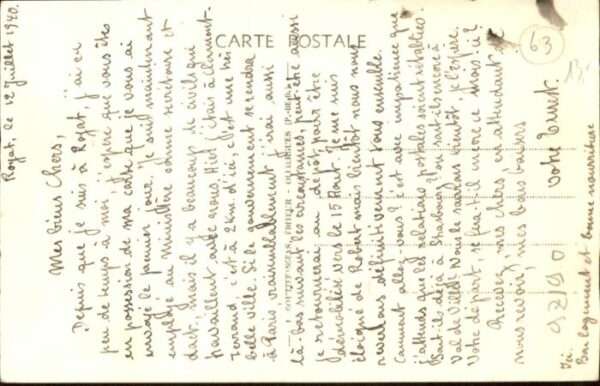 Royat, le 12 Juillet 1940.
Mes biens Chers,
Depuis que je suis à Royat, j'ai eu
peu de temps à moi. J'espère que vous êtes
en possession de ma carte que je vous ai
envoyé le premier jour. Je suis maintenant
employé au Ministère comme secrétaire et
mais il y a beaucoup de civils qui
travaillent avec nous. Hier j'étais à Clermont-
Ferrand, c'est à 2 km d'ici, c'est une très
belle ville. Si le gouvernement se rendra
à Paris vraisemblablement j'irai aussi
là-bas suivant les circonstances, peut-être aussi
je retournerai au dépôt pour être
démobilisé vers le 15 Août. Je me suis
éloigné de Robert mais bientôt nous nous
reverrons définitivement tous ensemble.
Comment allez-vous? c'est avec impatience que
j'attends que les relations postales soient rétablies.
Sont-ils déjà à Strasbourg? ou sont-ils encore à
Val de Villé? Nous le saurons bientôt je l'espère.
Votre départ, se fera-t-il encore ce mois-ci?
Recevez, mes chers, en attendant de
nous revoir, mes bons baisers
Votre Ernest.
Ici
Bon logement et bonne nourriture
CARTE POSTALE
63
9Z/90